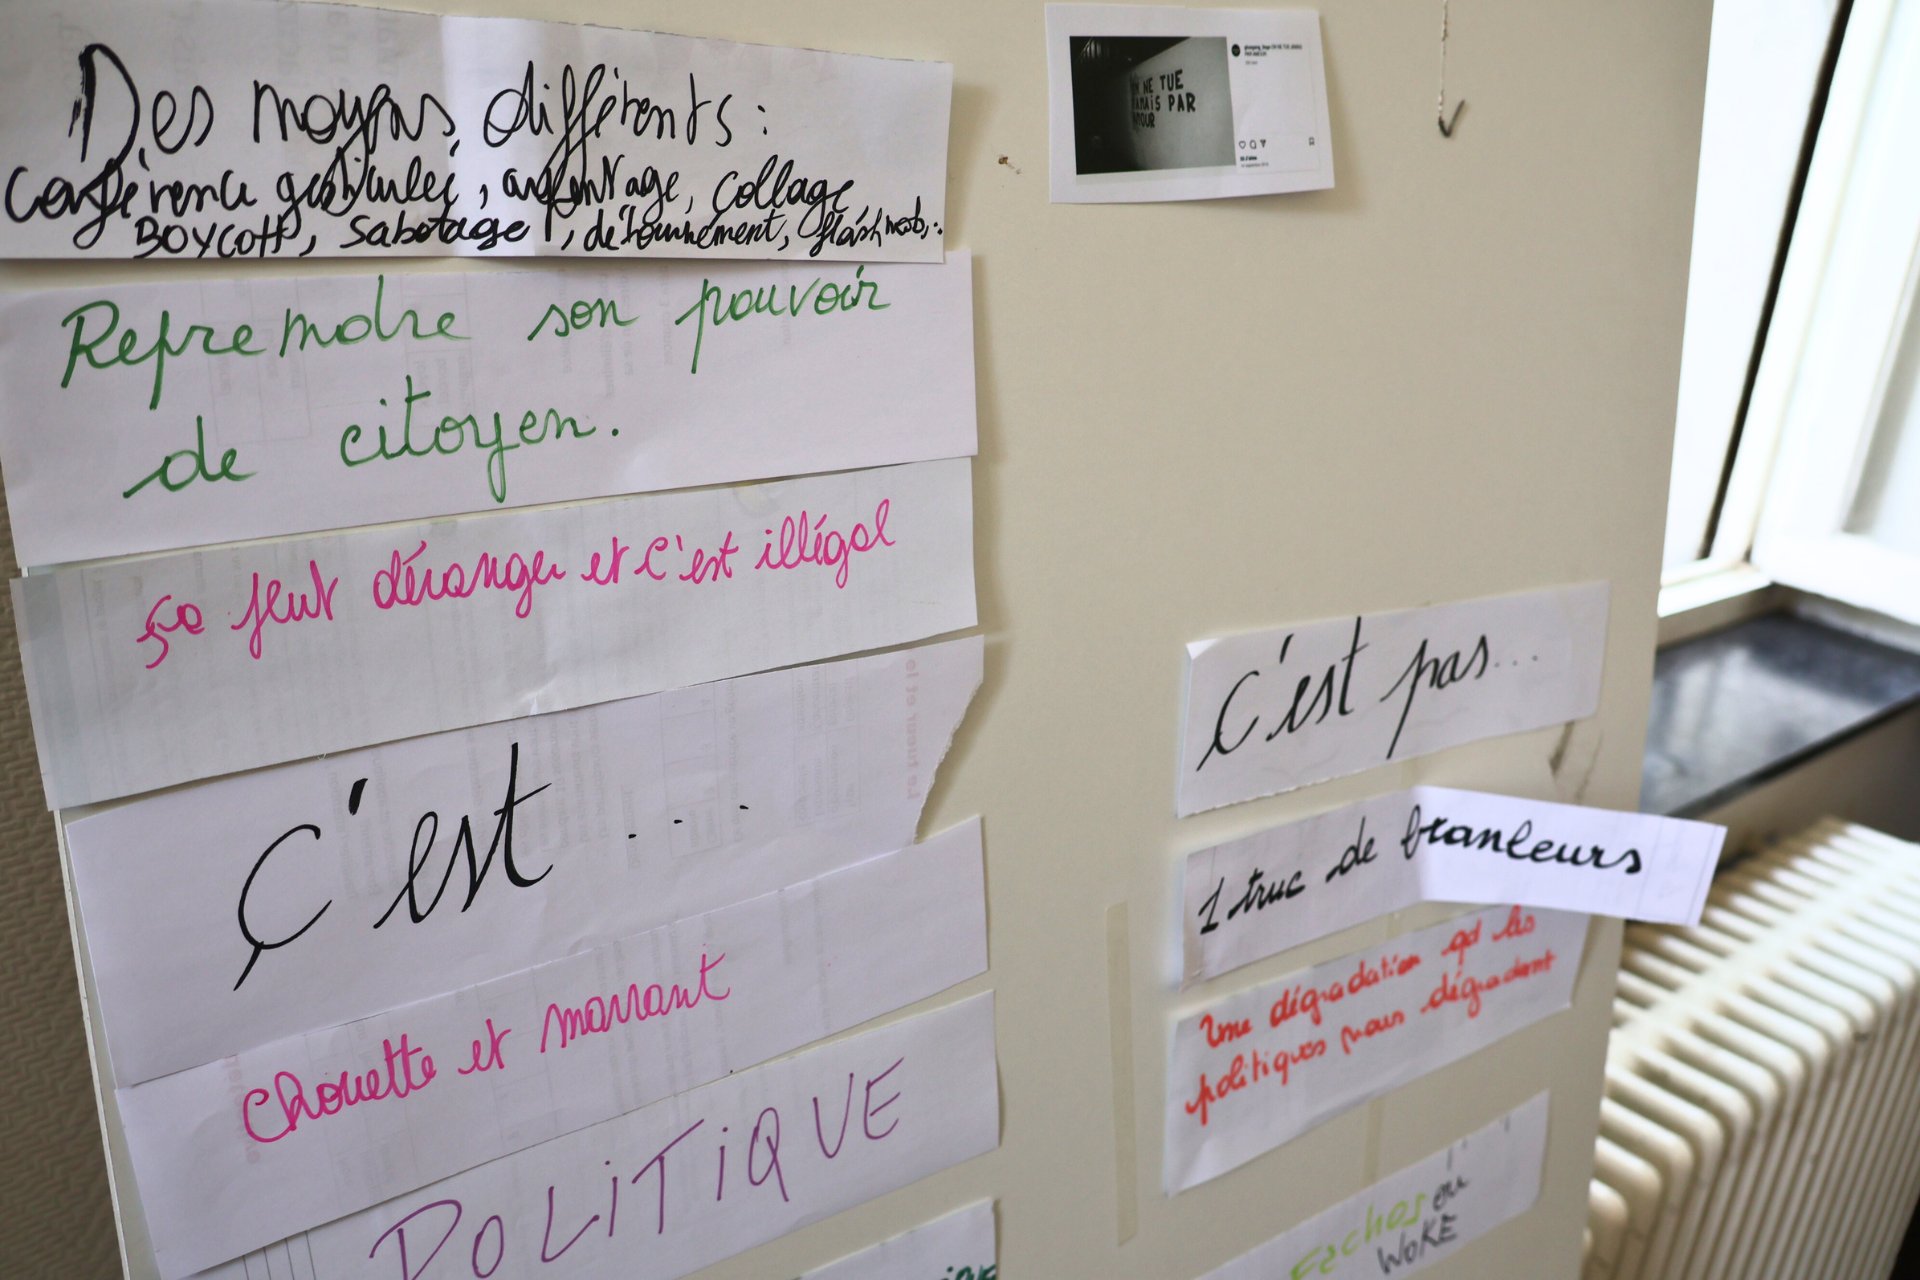 Des moyens différents :
Conférence gesticulée, arpentage, collage
BOYCOTT, Sabotage, détournement, flash mob,..
Reprendre son pouvoir
de citoyen.
ça peut déranger et c'est illégal
C'est ...
chouette et marrant
POLITIQUE
NE TUE
JAMAIS PAR
AMOUR
C'est pas...
1 truc de branleurs
Une dégradation qd les
politiques nous dégradent
Fachos ou
WOKE